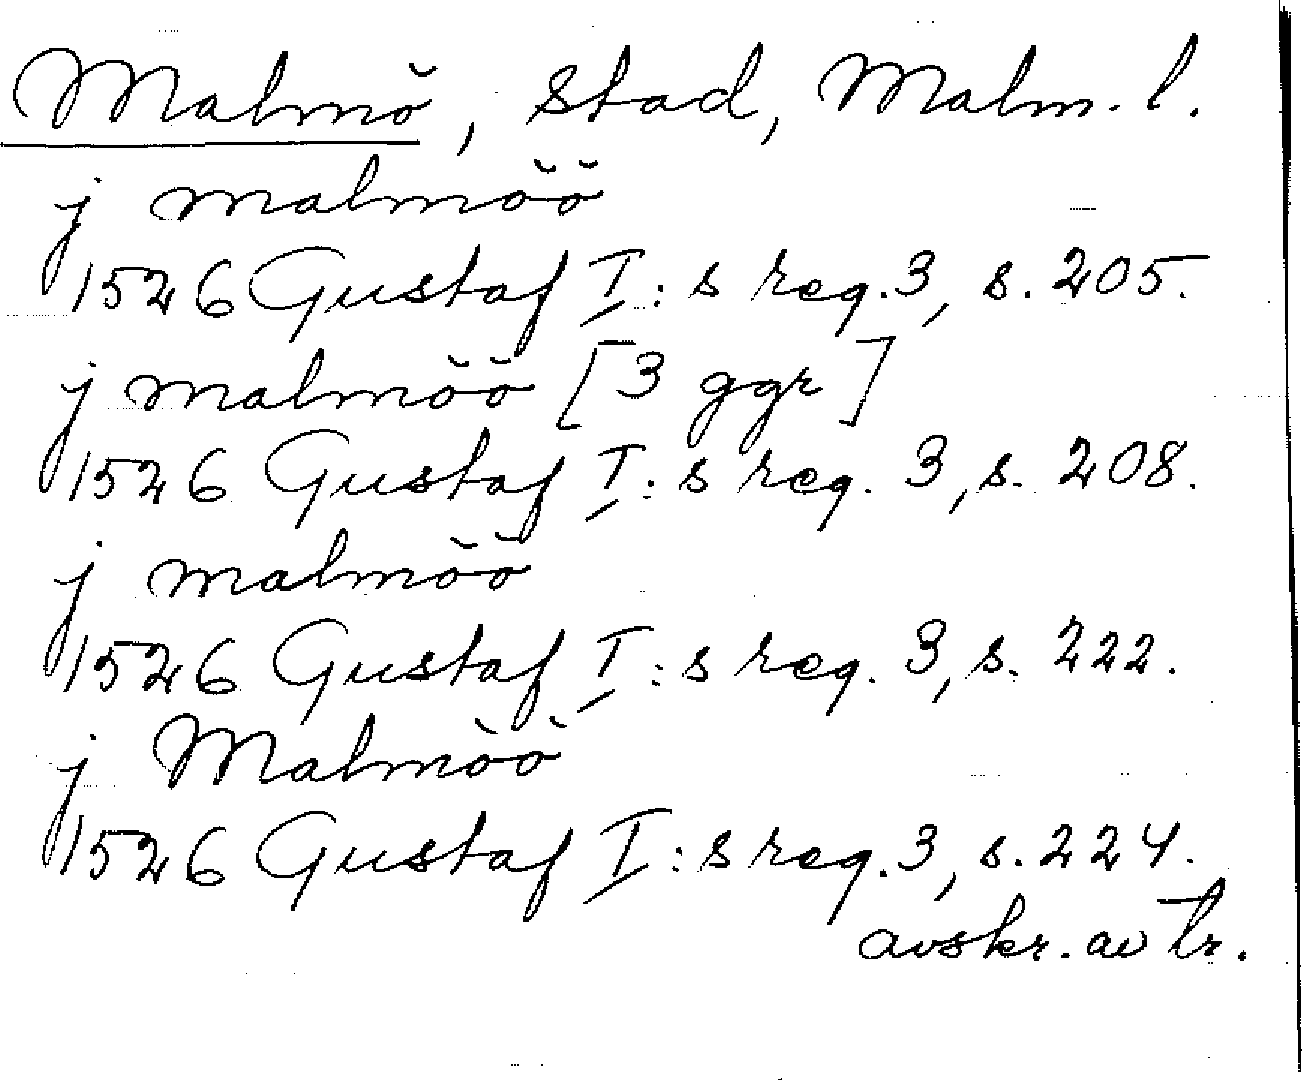 Malmö, stad, Malm. l.
j malmöö
1526 Gustaf I:s reg. 3, s. 205.
j malmöö [3 ggr]
1526 Gustaf I:s reg. 3, s. 208.
j malmöö
1526 Gustaf I:s reg. 3, s. 222.
j Malmöö
1526 Gustaf I:s reg. 3, s. 224.
avskr. av tr.